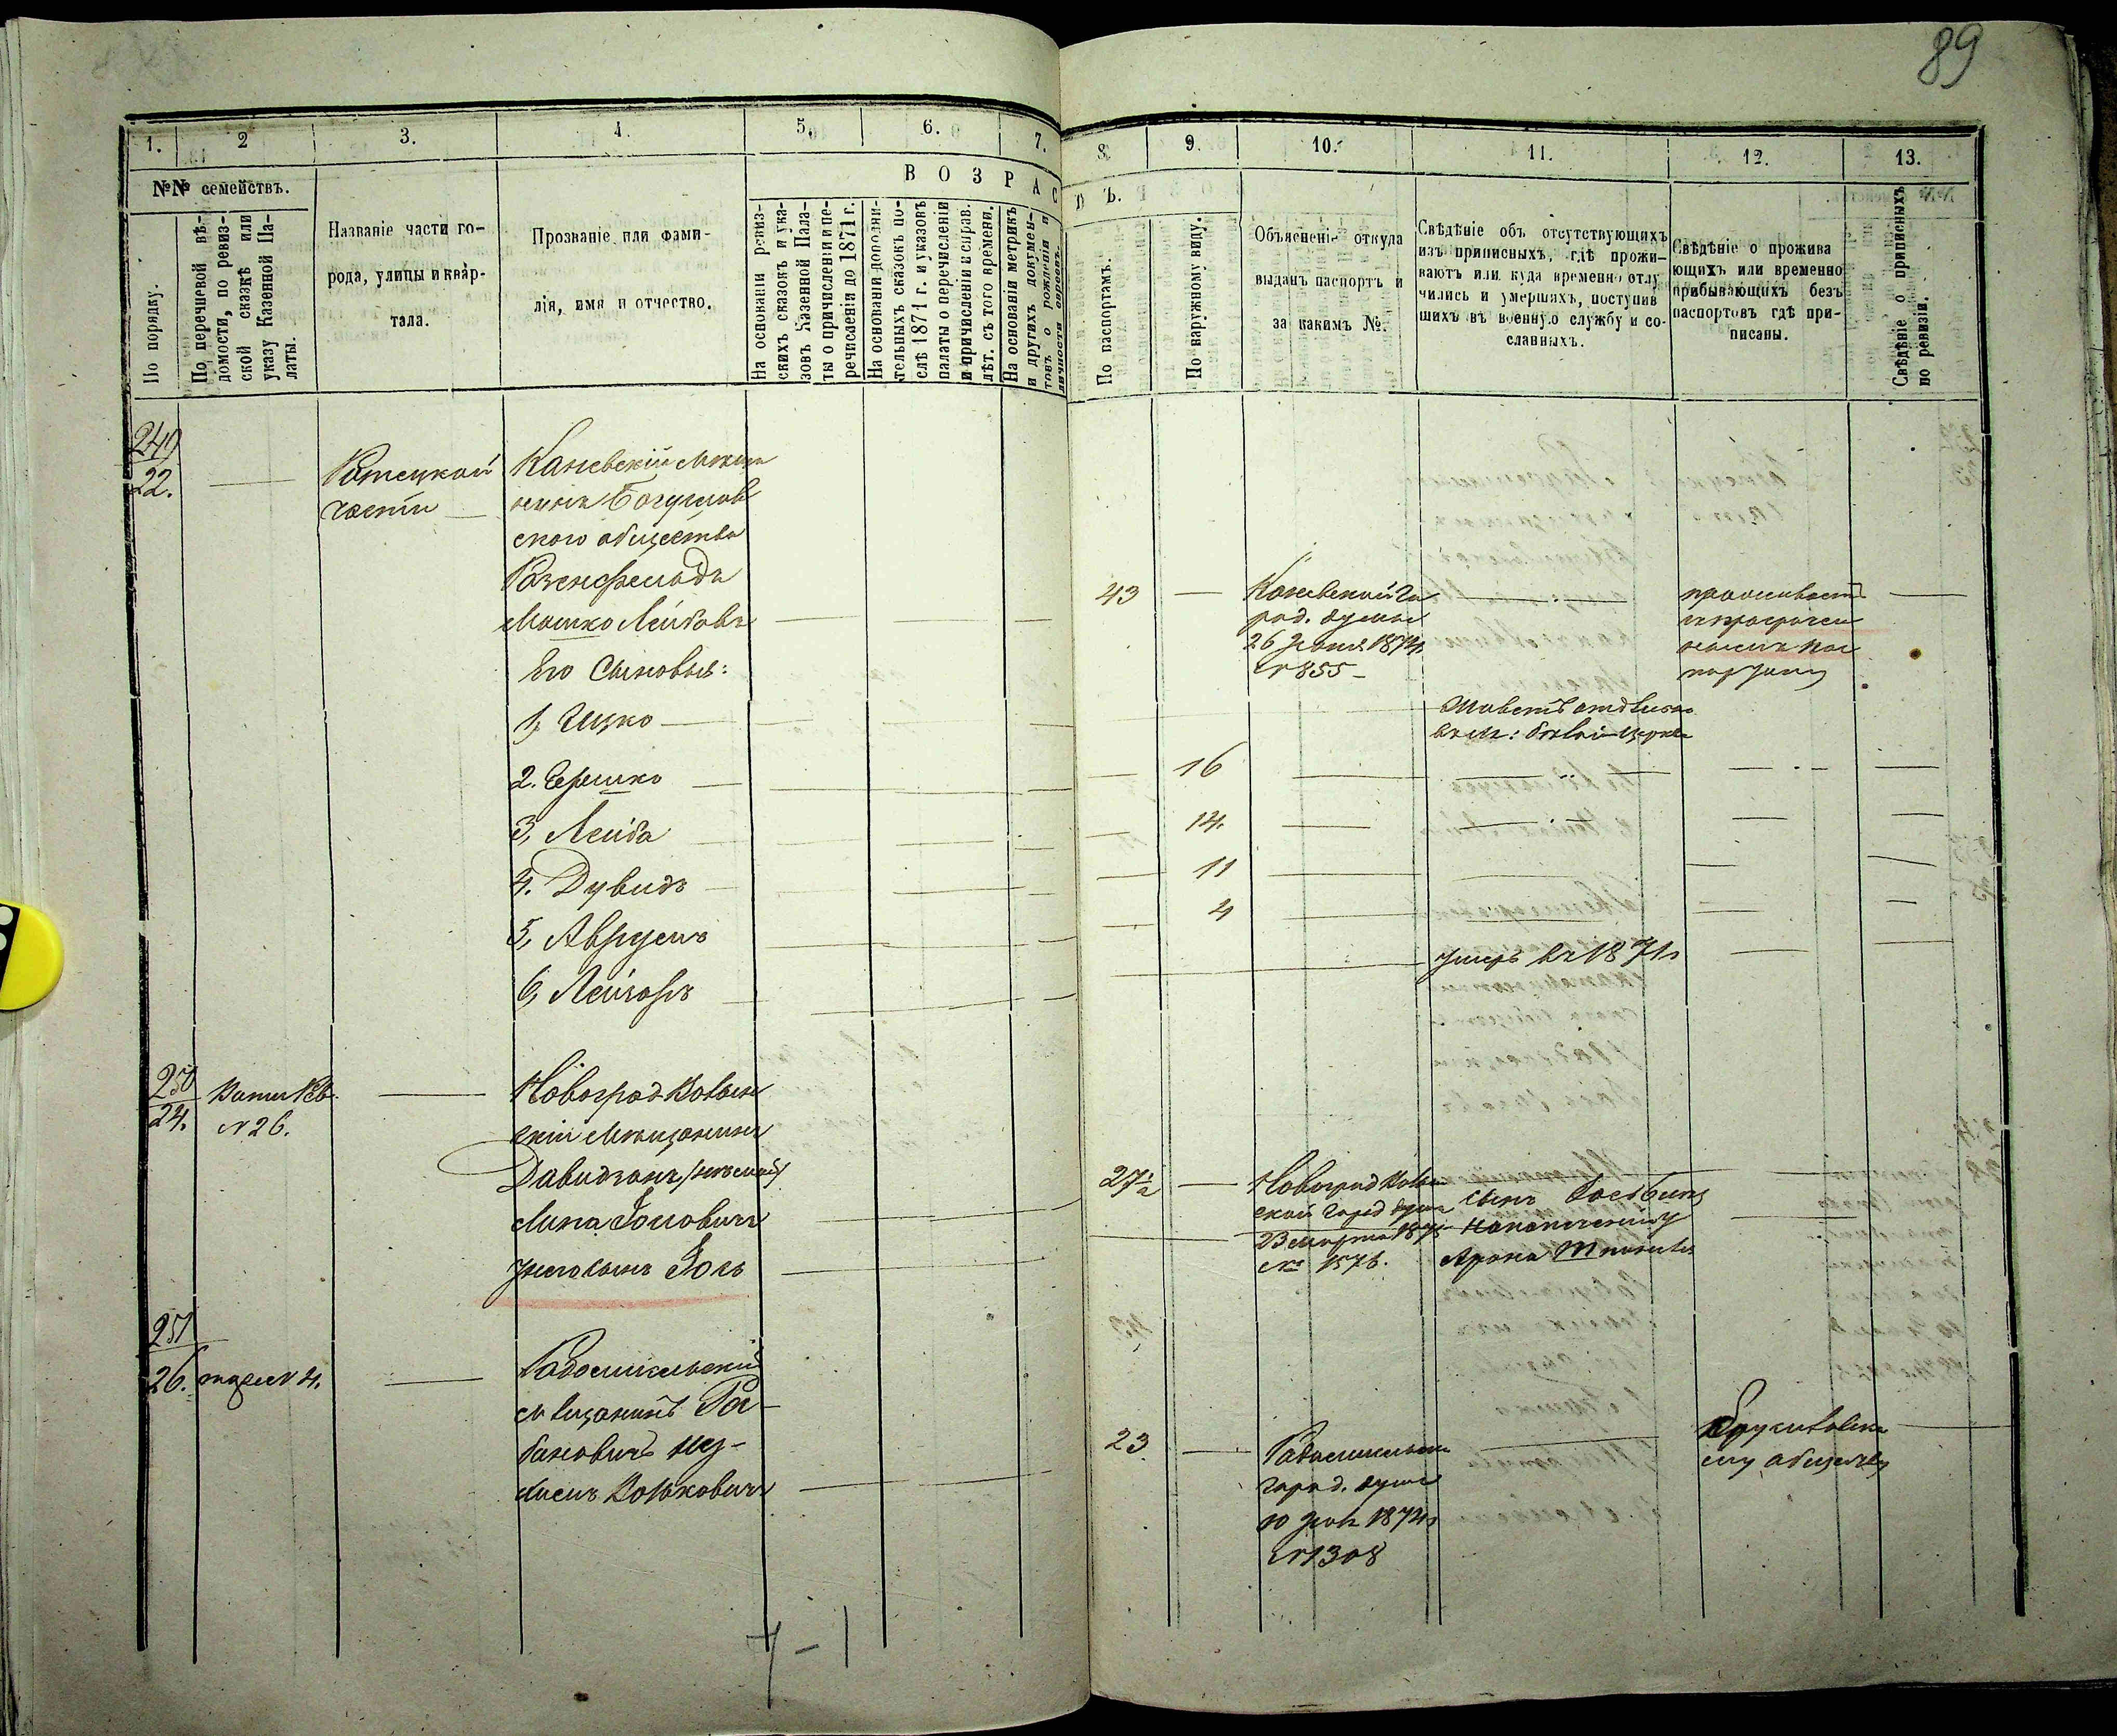 89
1.
2
3.
4.
5.
6.
7.
8.
9.
10.
11.
12.
13.
№№ семействъ.
В О З Р А С
Т Ъ.
По порядку.
По перечневой вѣ-
домости, по ревиз-
ской сказкѣ или
указу Казенной Па-
латы.
Названіе части го-
рода, улицы и квар-
тала.
Прозваніе или фами-
лія, имя и отчество.
На основаніи ревиз-
скихъ сказокъ и ука-
зовъ Казенной Пала-
ты о причисленіи и пе-
речисленіи до 1871 г.
На основаніи дополни-
тельныхъ сказокъ по-
слѣ 1871 г. и указовъ
палаты о перечисленіи
и причисленіи и справ.
лѣт. съ того времени.
На основаніи метрикъ
и другихъ докумен-
товъ о рожденіи и
личности евреевъ.
По паспортамъ.
По наружному виду.
Объясненіе откуда
выданъ паспортъ и
за какимъ №.
Свѣдѣніе объ отсутствующихъ
изъ приписныхъ, гдѣ прожи-
ваютъ или куда временно отлу
чились и умершихъ, поступив
шихъ въ военную службу и со-
сланныхъ.
Свѣдѣніе о прожива
ющихъ или временно
прибывающихъ безъ
паспортовъ гдѣ при-
писаны.
Свѣдѣніе о приписныхъ
по ревизіи.
249
22.
части
Каневскій Мѣща
нинъ Богуслав
скаго общества
Розенфельдъ
Мошко Лейбовъ
43
Каневской Го
род. думы
1874
№ 855
проживает
паспорту
Его Сыновья:
1, Ицко
Живетъ отдѣльно
въ м: Бѣлой-Церкви
2. Гершко
16
3, Лейба
14.
4. Дувидъ
11
5, Аврумъ
4
6, Лейзоръ
умеръ въ 1871 г
250
24.
№ 26.
Новоградволын
скій Мѣщанинъ
Давидзонъ
Липа Іоновичъ
у него сынъ Іось
27½
Новоград Волын
ской Город думы
23 марта 1875
№ 1576.
сынъ
Арона
251
26.
№ 4.
Радомысльскій
мѣщанинъ Ра-
бановичъ
Волковичъ
23
Радомысльск
город. думы
10 1874 г
№ 1308
обществу
7 - 1